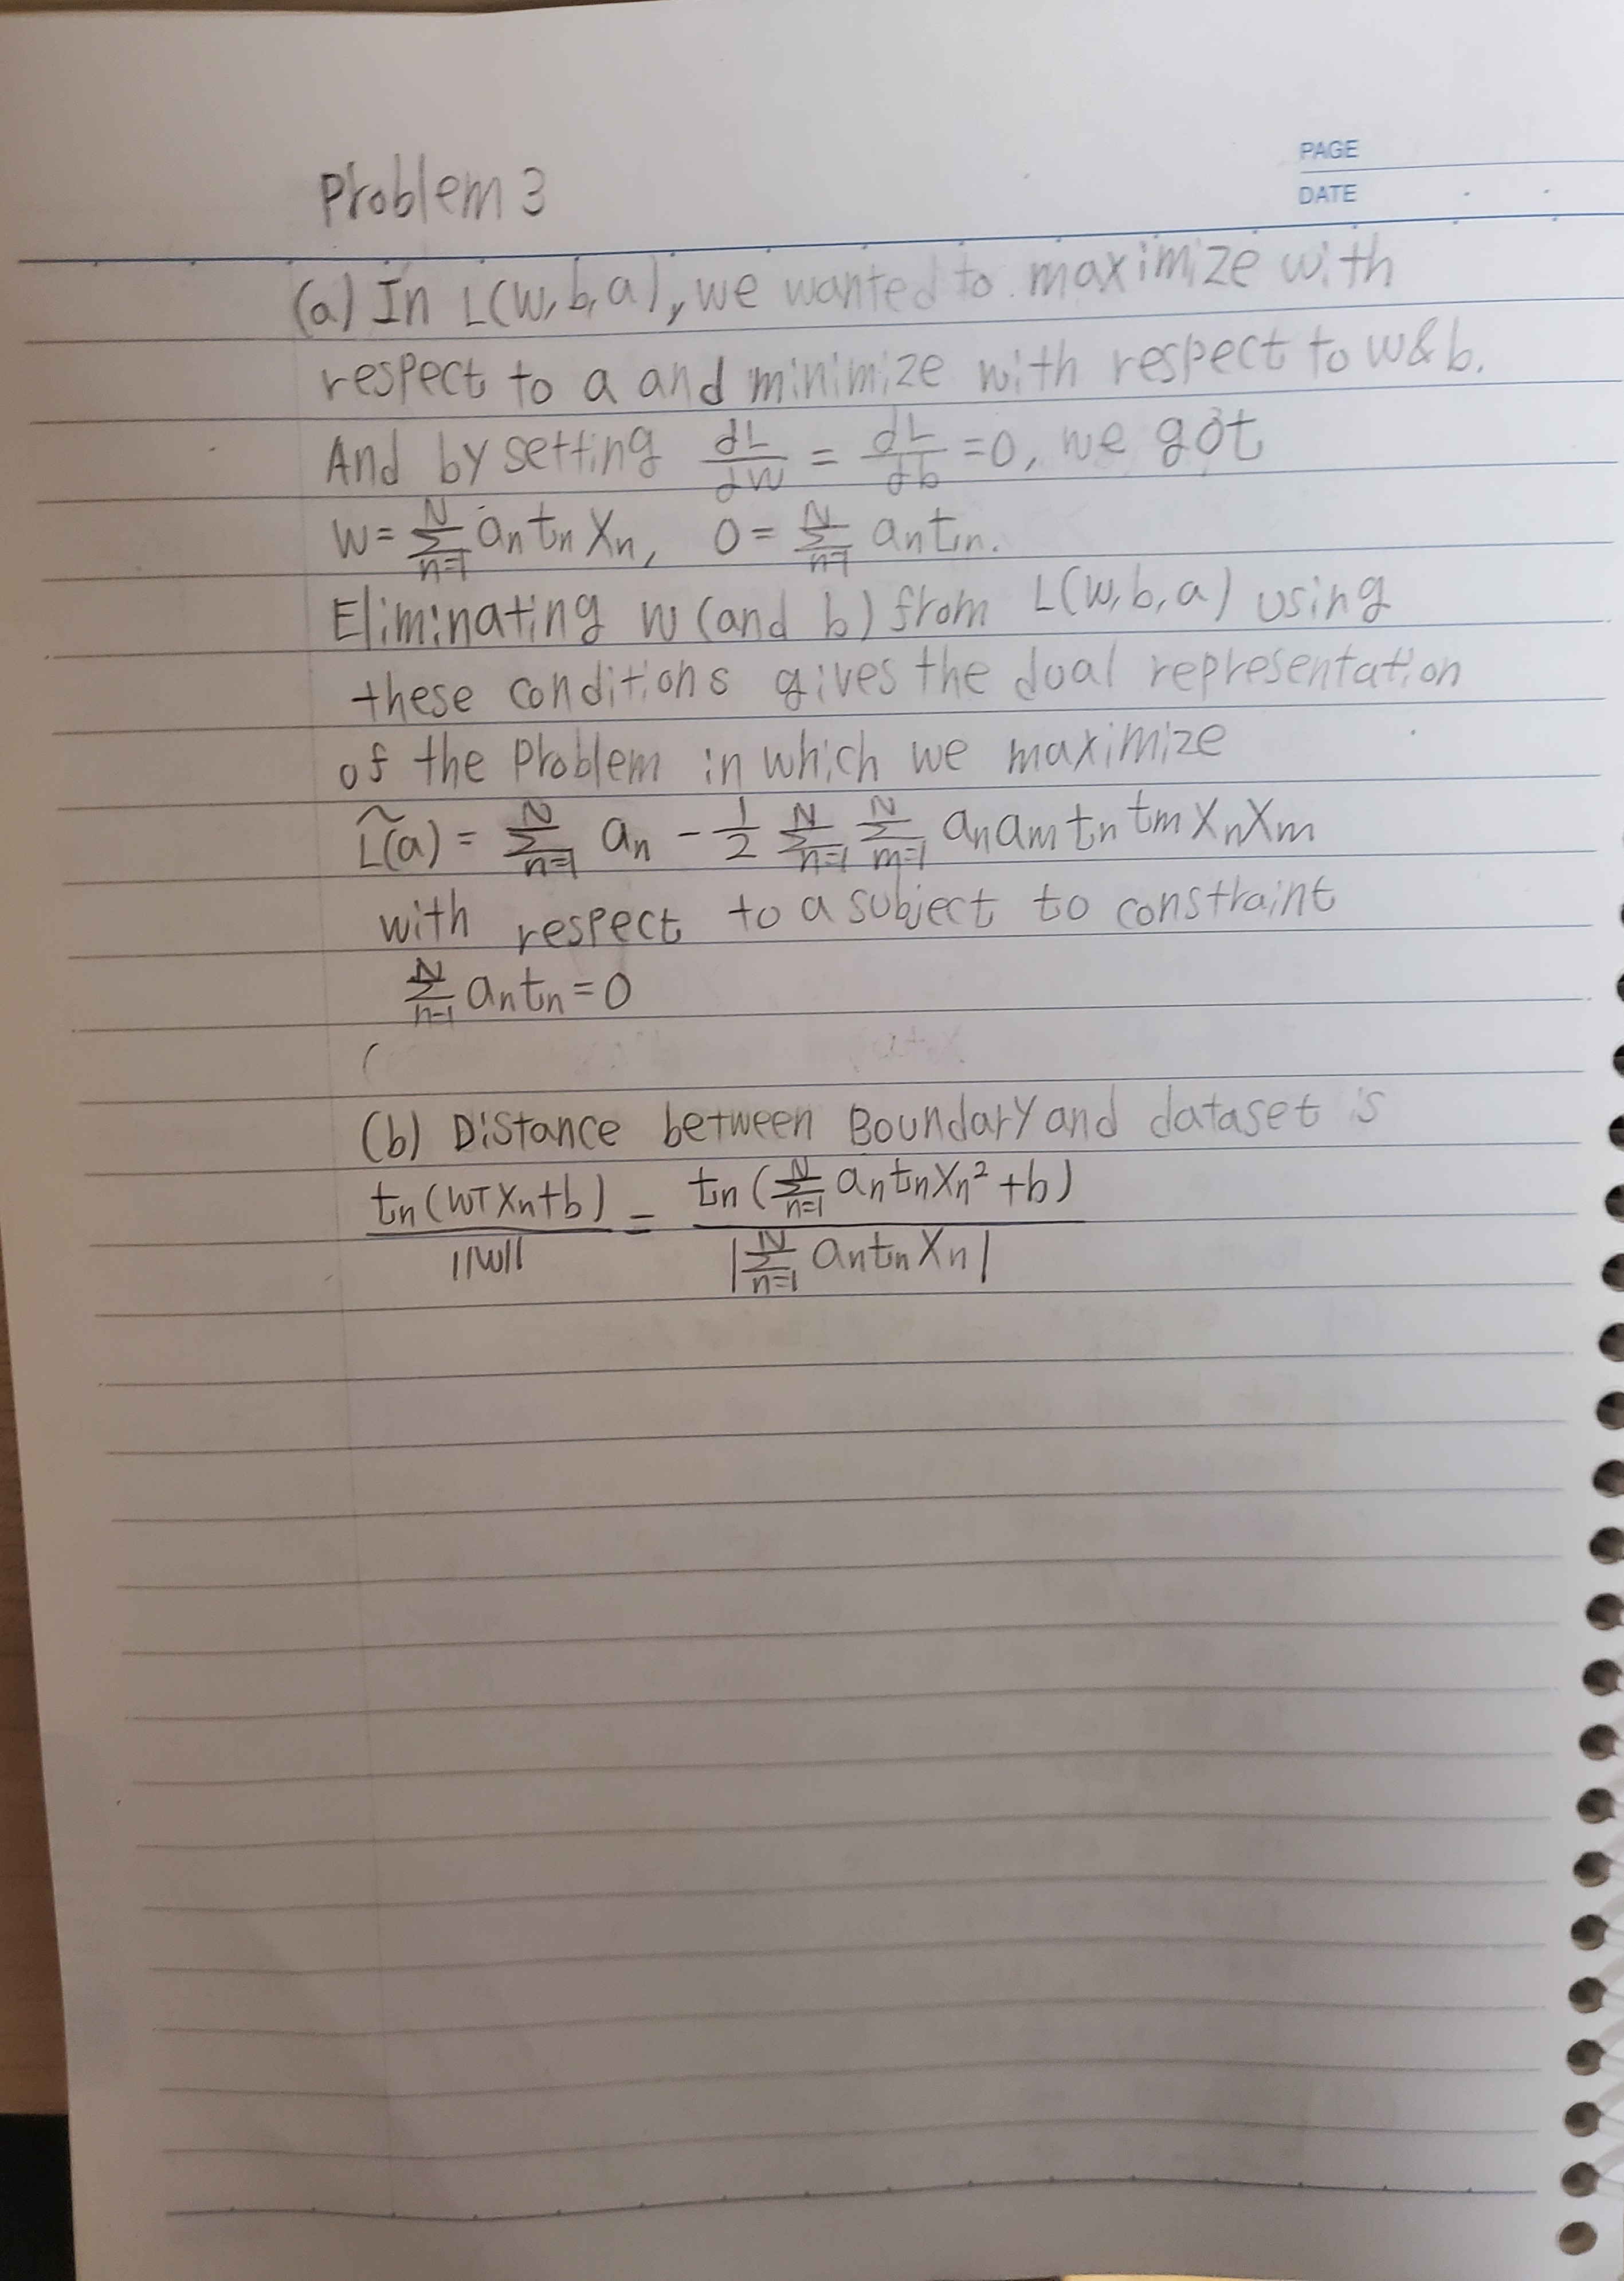 PAGE
DATE
Problem 3
(a) In L(w,b,a), we wanted to maximize with
respect to a and minimize with respect to w&b.
And by setting ∂L/∂w = ∂L/∂b = 0, we got
w = Σ_{n=1}^{N} a_n t_n x_n, 0 = Σ_{n=1}^{N} a_n t_n.
Eliminating w (and b) from L(w,b,a) using
these conditions gives the dual representation
of the problem in which we maximize
L̃(a) = Σ_{n=1}^{N} a_n - 1/2 Σ_{n=1}^{N} Σ_{m=1}^{N} a_n a_m t_n t_m x_n x_m
with respect to a subject to constraint
Σ_{n=1}^{N} a_n t_n = 0
(
(b) Distance between Boundary and dataset is
t_n(w^T x_n + b) / ||w|| = t_n(Σ_{n=1}^{N} a_n t_n x_n² + b) / |Σ_{n=1}^{N} a_n t_n x_n|